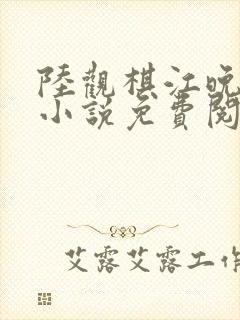 陸觀棋江晚
小說免費閱
艾露艾露工作